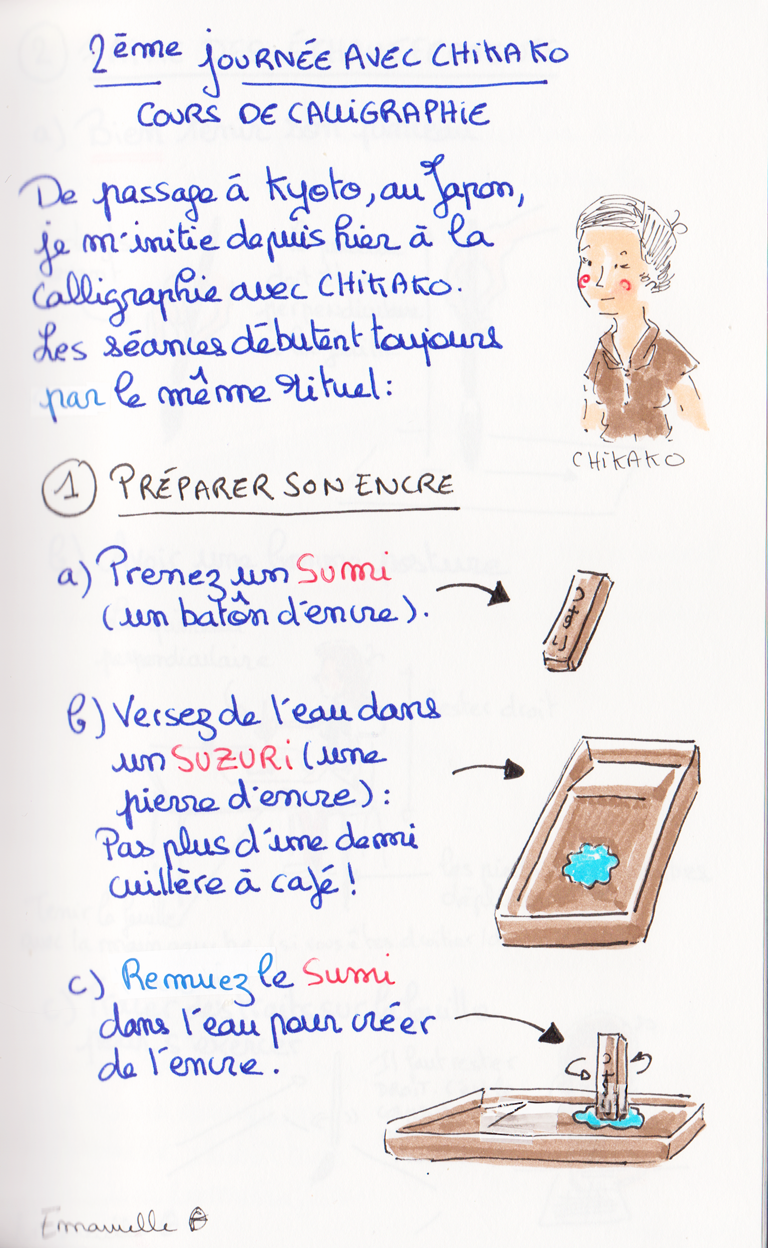 2ème JOURNÉE AVEC CHIKAKO
COURS DE CALLIGRAPHIE
De passage à Kyoto, au Japon,
je m'initie depuis hier à la
calligraphie avec CHIKAKO.
Les séances débutent toujours
par le même rituel :
CHIKAKO
1 PRÉPARER SON ENCRE
a) Prenez un Sumi
(un batôn d'encre).
b) Versez de l'eau dans
un SUZURI (une
pierre d'encre) :
Pas plus d'une demi
cuillère à café !
c) Remuez le Sumi
dans l'eau pour créer
de l'encre.
Emmanuelle